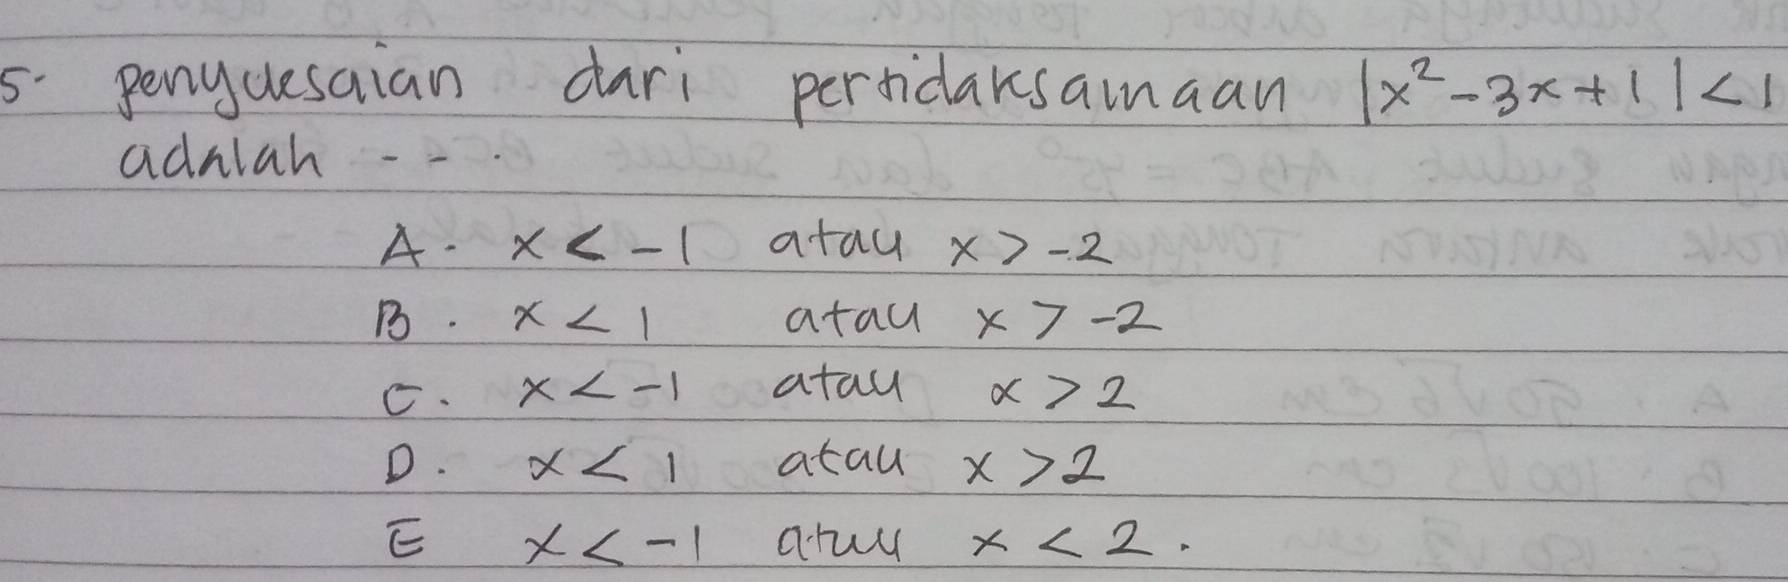 5. penyelesaian dari pertidaksamaan |x² - 3x + 1| < 1
adalah - - .
A. x < -1 atau x > -2
B. x < 1 atau x > -2
C. x < -1 atau x > 2
D. x < 1 atau x > 2
E x < -1 atau x < 2.